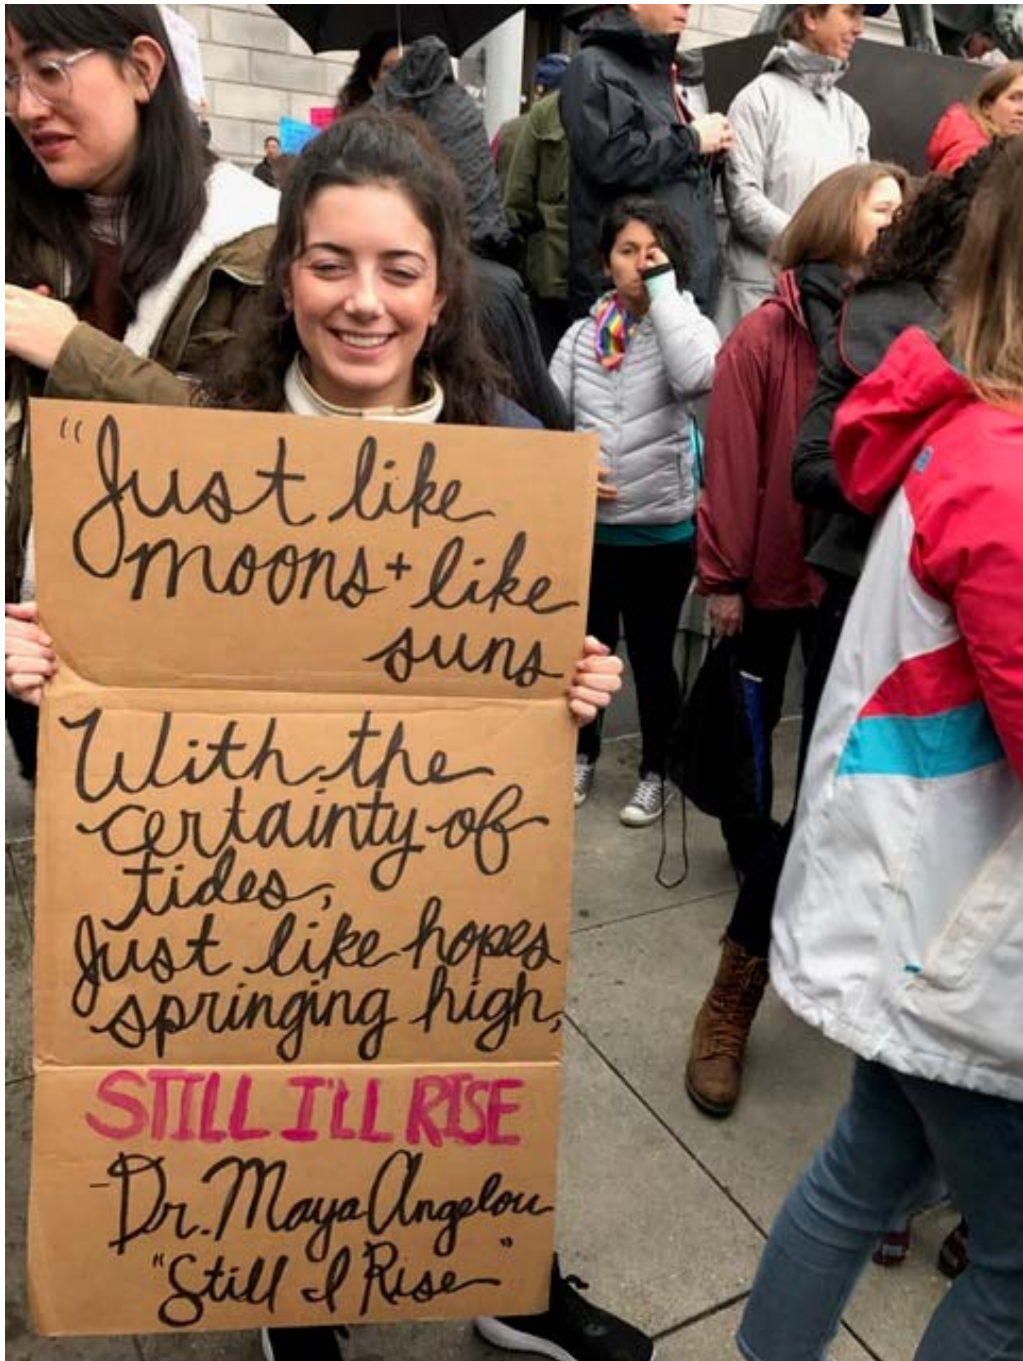 "Just like
moons + like
suns
With the
certainty of
tides,
Just like hopes
springing high,
STILL I'LL RISE
-Dr. Maya Angelou
"Still I Rise"